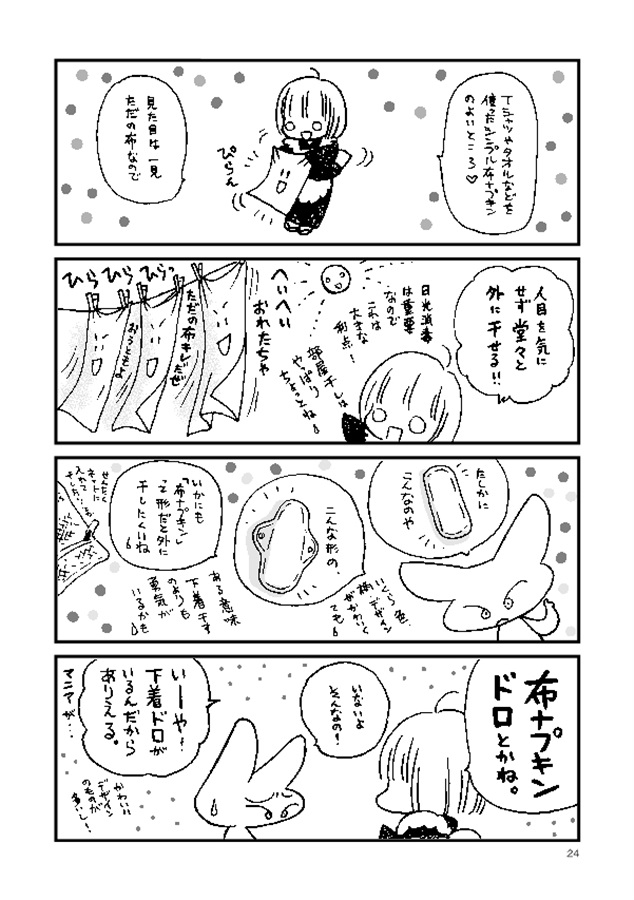 Tシャツやタオルなどを
使ったシンプル布ナプキン
のよいところ♡
ぴらん
見た目は一見
ただの布なので
人目を気に
せず堂々と
外に干せる!!
日光消毒
は重要
なので
これは
大きな
利点!
部屋干しは
やっぱり
ちょっとね
へいへい
おれたちゃ
ひらひらひらっ
ただの布キレだぜ
おうともよ
たしかに
こんなのや
いくら色、
柄、デザイン
がかわいく
ても
こんな形の、
いかにも
「布ナプキン」
って形だと外に
干したくないね
ある意味
下着干す
のよりも
勇気が
いるかも
せんたく
ネットに
入れて
干したり…
布ナプキン
ドロとかね。
いないよ
そんなの!
いーや!
下着ドロが
いるんだから
ありえる。
マニアが…
かわいい
デザイン
のものが
多いし!
24